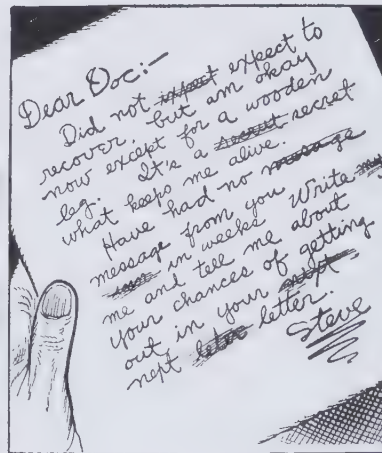 Dear Doc:—
Did not expect expect to
recover, but am okay
now except for a wooden
leg. It's a secret
what keeps me alive.
Have had no message
message from you
in weeks Write
me and tell me about
your chances of getting
out in your next
nept letter.
Steve